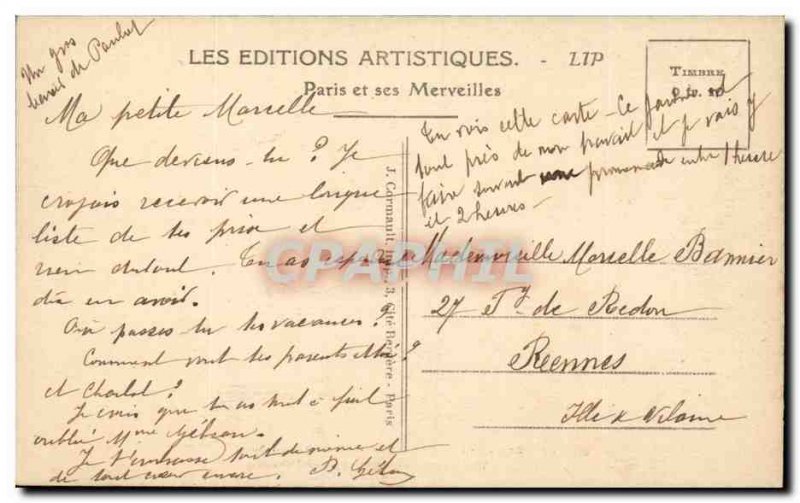 Un gros
baiser de Paulot
LES EDITIONS ARTISTIQUES. - LIP
Paris et ses Merveilles
TIMBRE
Ma petite Marcelle
Que deviens-tu? Je
croyais recevoir une longue
liste de tes prix et
rien du tout. Tu as espérée
dû en avoir.
Où passes-tu tes vacances?
Comment vont tes parents
et Charlot?
Je crois que tu as tout à fait
oublié Mme
Je t'embrasse tout de même et
de tout cœur encore. B.
Tu vois cette carte - Ce jardin est
tout près de mon travail et je vais y
faire souvent une promenade entre 1 heure
et 2 heures -
J. Cormault, Imp., 3, Cité Bergère - Paris
Mademoiselle Marcelle Bannier
27 Fg de Redon
Reennes
Ille & Vilaine
CPAPHIL